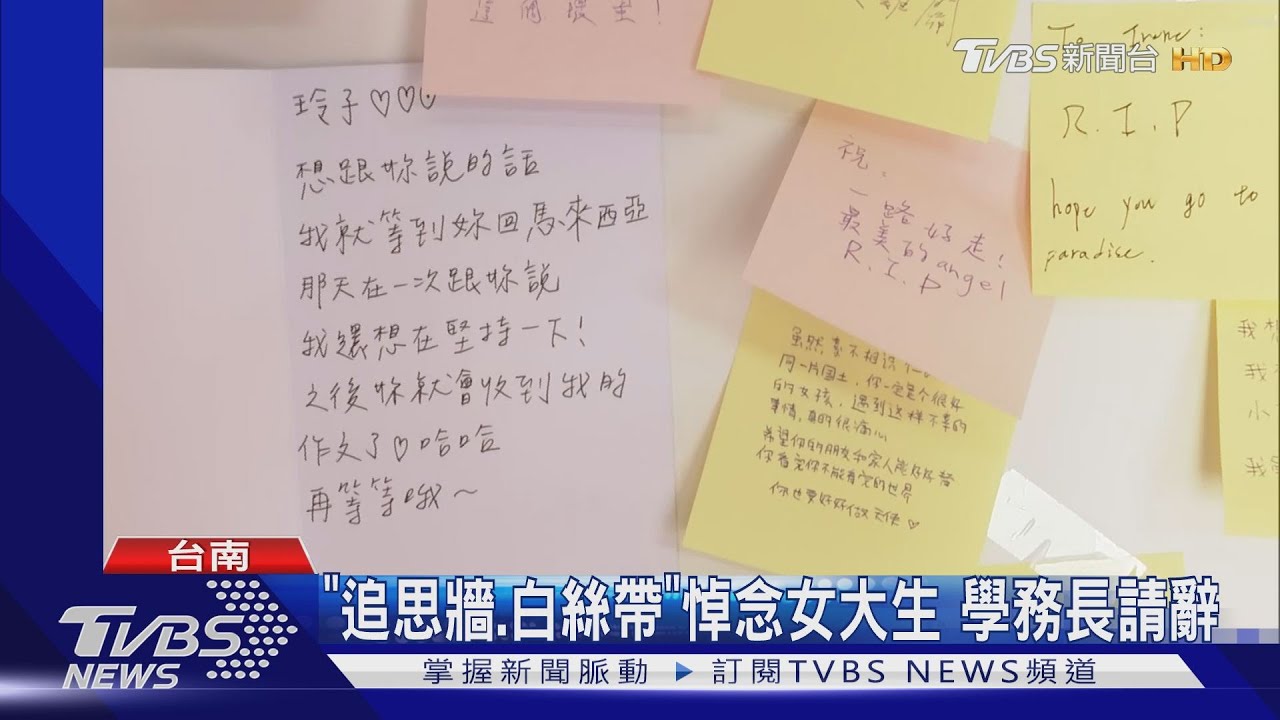 這個環里!
TVBS新聞台 HD
玲子♡♡♡
想跟妳說的話
我就等到妳回馬來西亞
那天在一次跟妳說
我還想在堅持一下!
之後妳就會收到我的
作文了♡哈哈
再等等哦~
To Irene:
R.I.P
hope you go to
paradise.
祝,
一路好走!
最美的angel
R.I.P
虽然素不相识
同一片国土,你一定是个很好
的女孩,遇到这样不幸的
事情,真的很痛心
希望你的朋友和家人能好好替
你看完你不能看完的世界
你也要好好做天使♡
我想
我
小
我
台南
"追思牆.白絲帶"悼念女大生 學務長請辭
TVBS
NEWS
掌握新聞脈動 ▶ 訂閱TVBS NEWS頻道